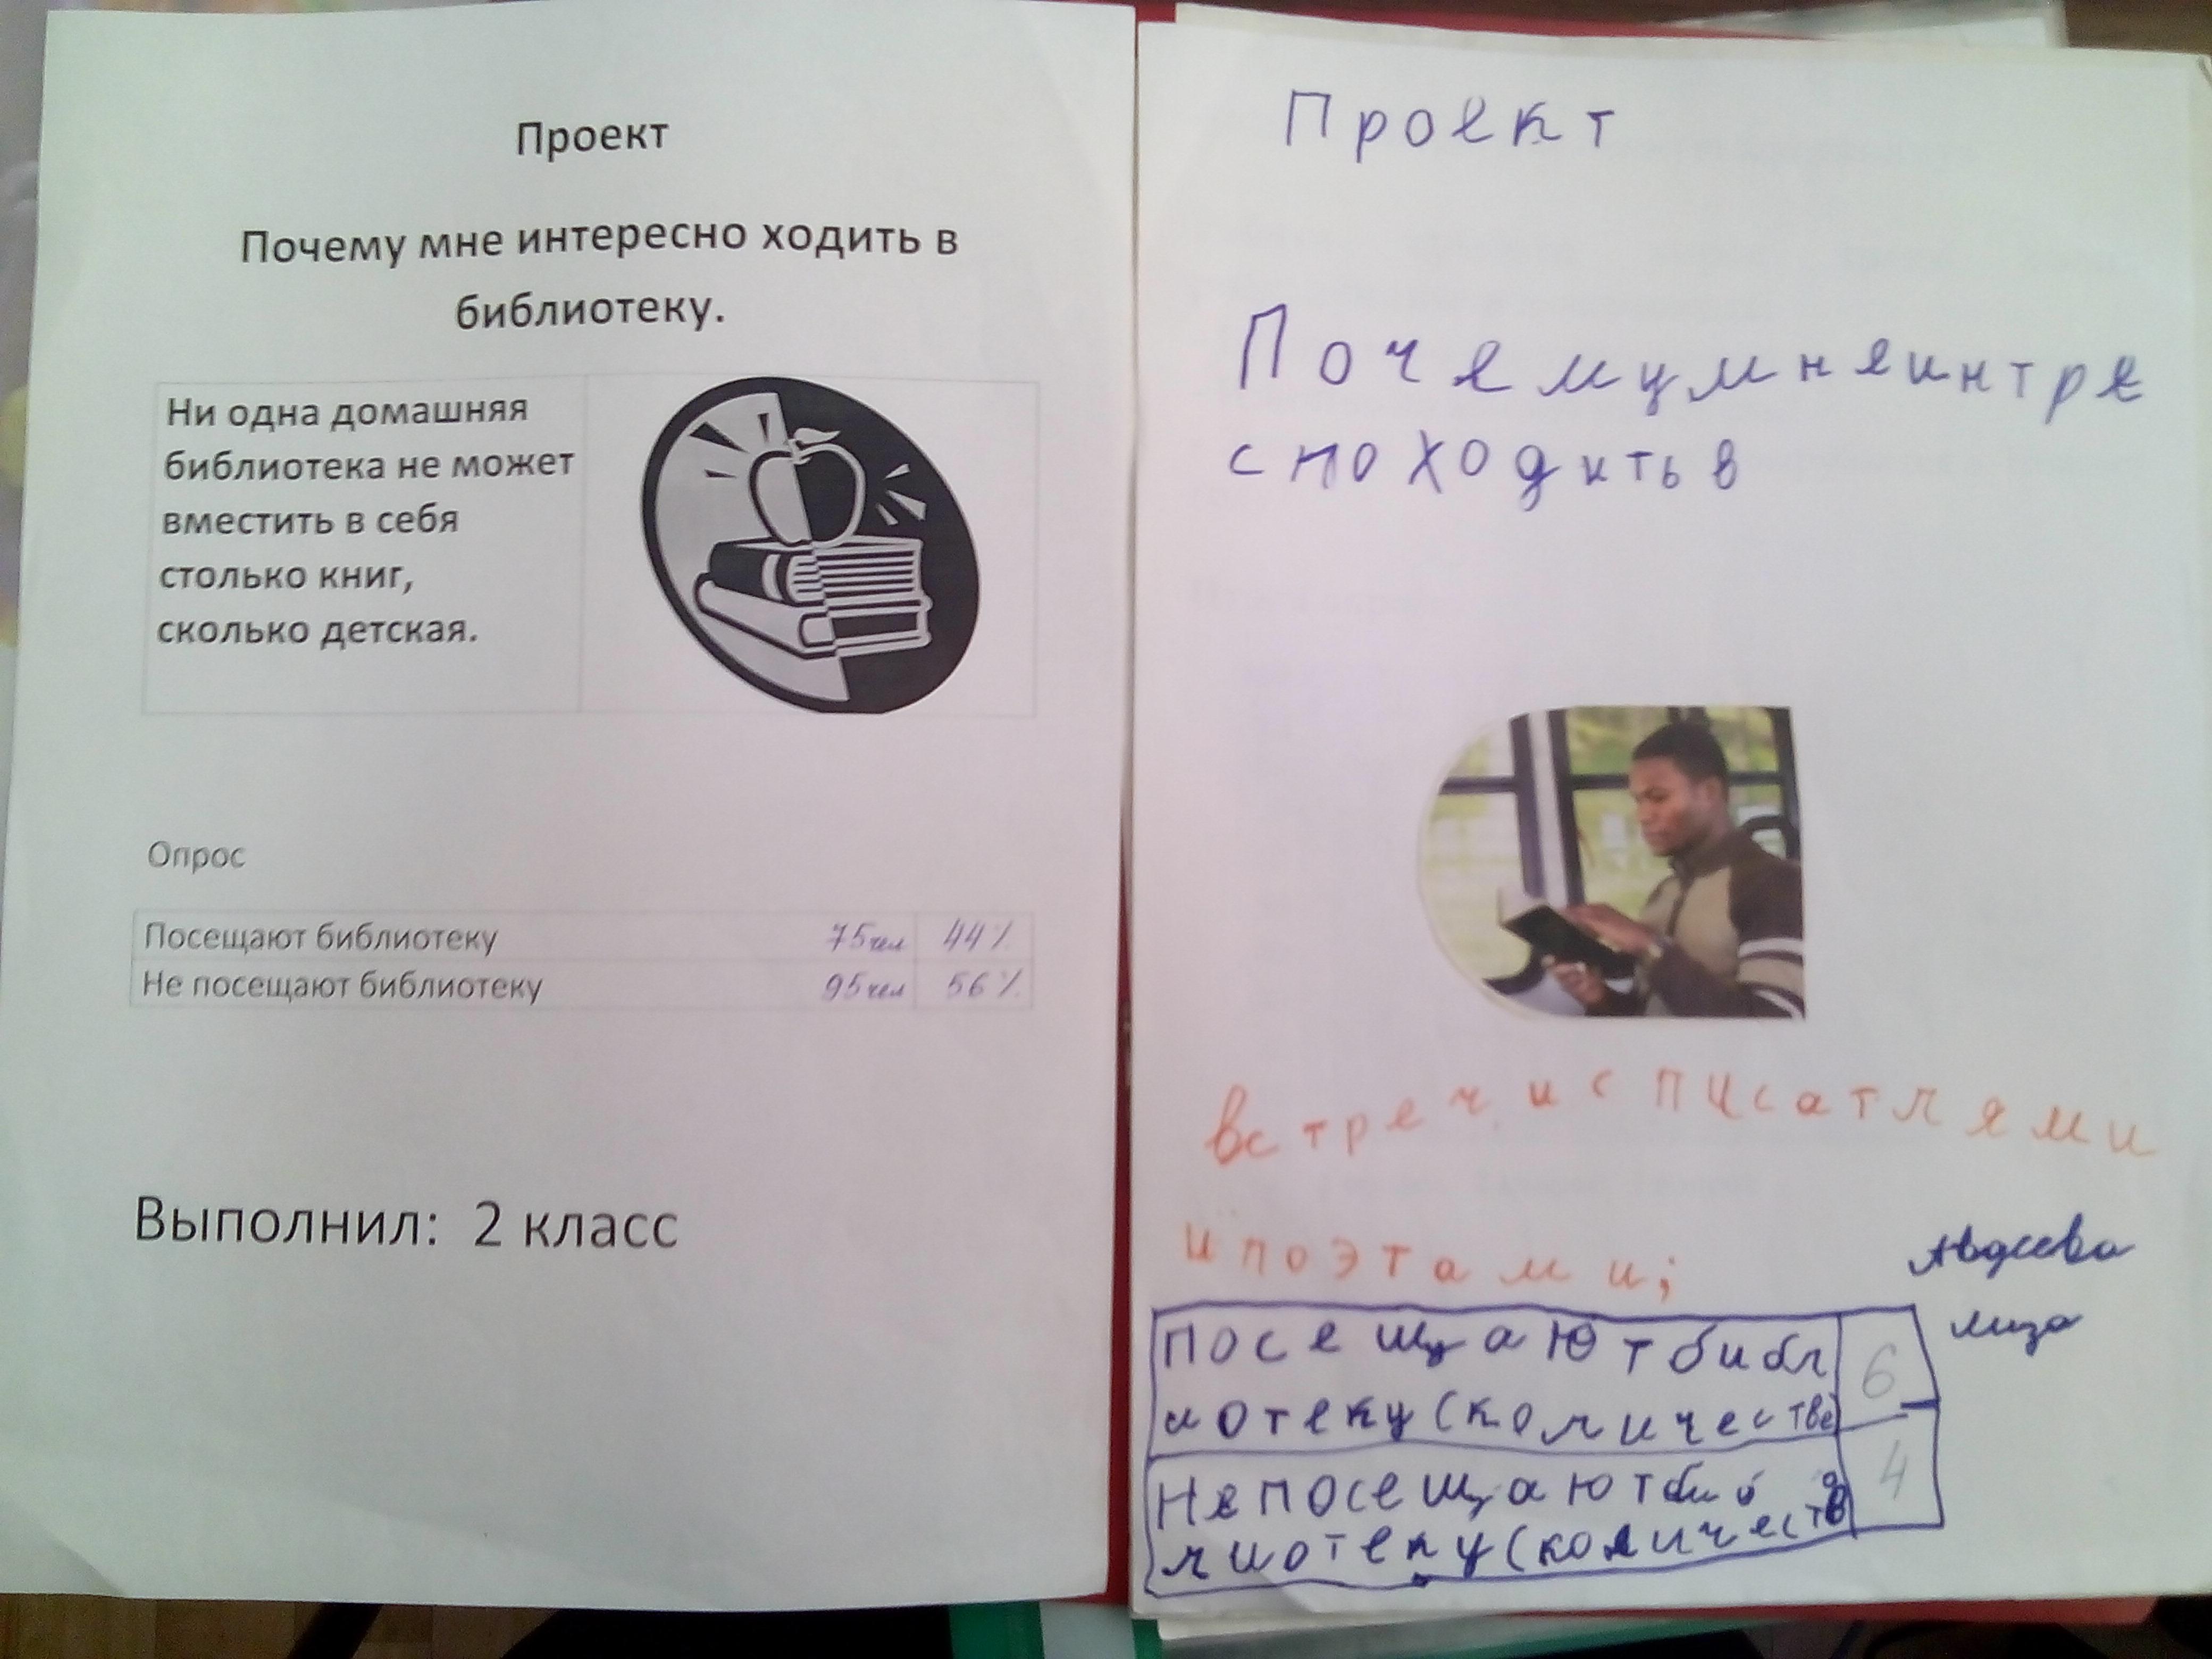 Проект
Почему мне интересно ходить в
библиотеку.
Ни одна домашняя
библиотека не может
вместить в себя
столько книг,
сколько детская.
Опрос
Посещают библиотеку 75чел 44%
Не посещают библиотеку 95чел 56%
Выполнил: 2 класс
Проект
Почему мне интре
сно ходить в
встречи с писатлями
и поэтами;
Авдеева
лиза
посещают библ
иотеку (количество 6
Не посещают биб
лиотеку (количество 4